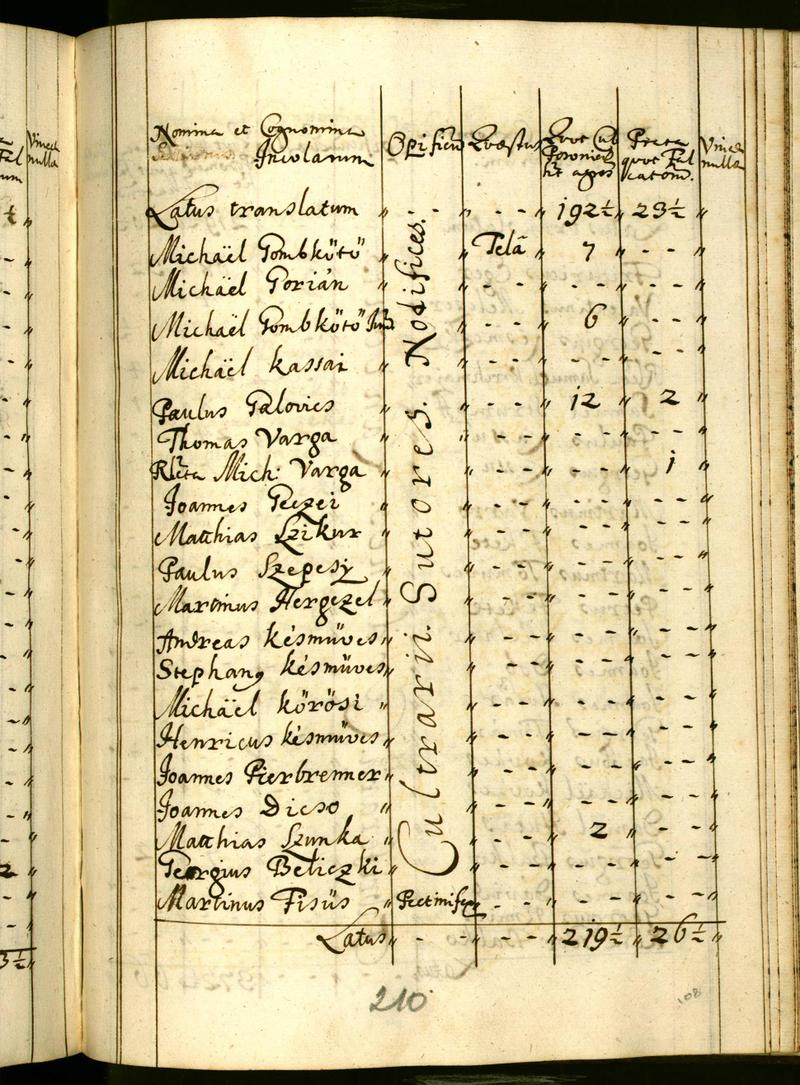 Nomina et Cognomina Incolarum Opificiū Quæstus Quot Cub Posonien ht agros Prata quot Falcatorū. Vinea nulla
Latus translatum " - - " - - " 192½ " 23½ "
Michaël Gombkötö " " Telā " 7 " - - "
Michaël Gorián " " - - " - - " - - "
Michaël Gombkötö Jun " - - " 6 " - - "
Michaël Kassai " " - - " - - " - - "
Paulus Palovics " " - - " 12 " 2 "
Thomas Varga " " - - " - - " - - "
Rlcta Mich: Varga " " - - " - - " 1 "
Joannes Geczei " " - - " - - " - - "
Matthias Czikur " " - - " - - " - - "
Paulus Szepesy " " - - " - - " - - "
Martinus Hergezel " " - - " - - " - - "
Andreas Késmüves " " - - " - - " - - "
Stephanꝰ Késmüves " " - - " - - " - - "
Michaël Körösi " " - - " - - " - - "
Henricus Késmüves " " - - " - - " - - "
Joannes Pierbrenner " " - - " - - " - - "
Joannes Dicso " " - - " - - " - - "
Matthias Szunka " " - - " 2 " - - "
Georgius Beliczki " " - - " - - " - - "
Martinus Fisüs Pectinifex " - - " - - " - - "
Cultrarii. Sutores. Nodifices.
Latus " - - " - - " 219½ " 26½ "
210
108